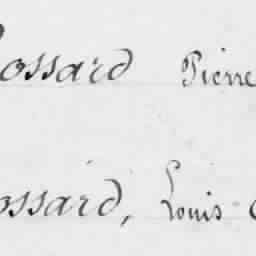 ossard Pierre
ossard, Louis